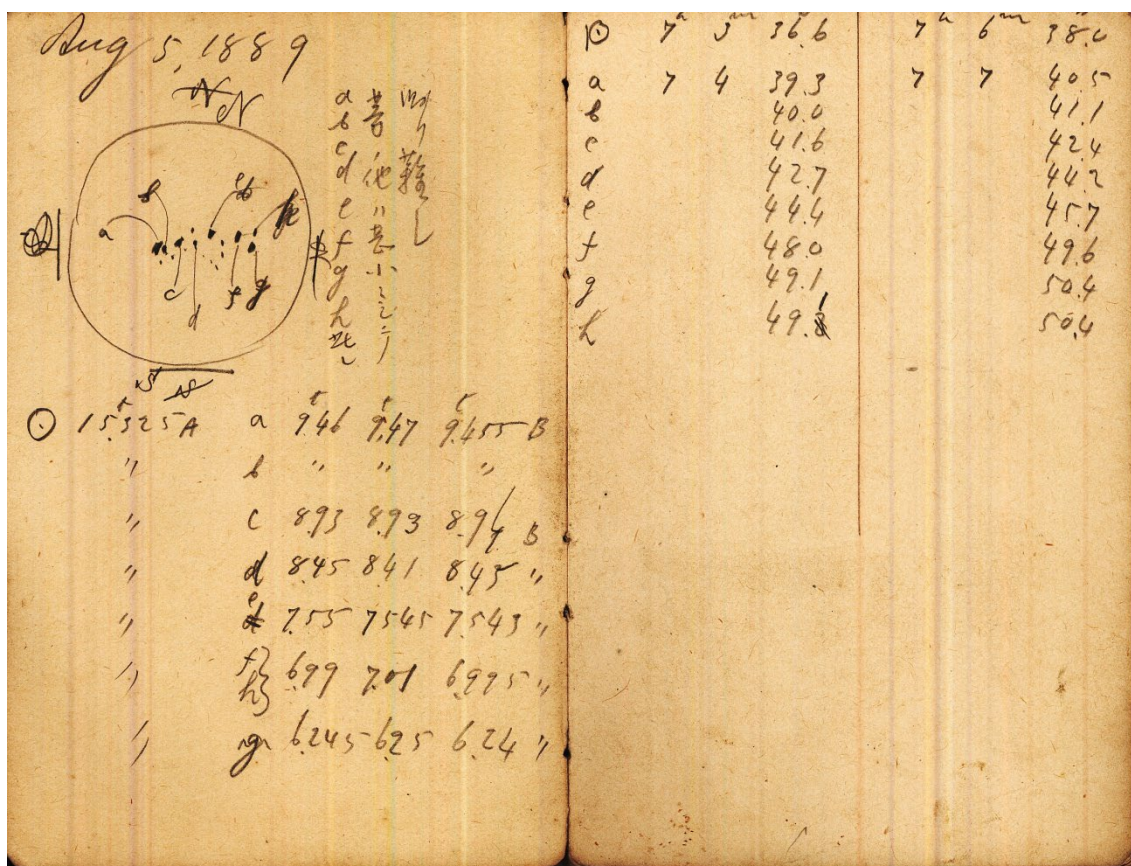 Aug 5, 1889
N
a b c d e f g h
a
b
c
d
e
f
g
☉ 15.325 A a 9.46 9.47 9.455 B
〃 b 〃 〃 〃
〃 c 8.93 8.93 8.94 B
〃 d 8.45 8.41 8.43 〃
〃 e 7.55 7.545 7.543 〃
〃 f h 6.99 7.01 6.995 〃
〃 g 6.245 6.25 6.24 〃
7 3 36.6 7 6 38.0
a 7 4 39.3 7 7 40.5
b 40.0 41.1
c 41.6 42.4
d 42.7 44.2
e 44.4 45.7
f 48.0 49.6
g 49.1 50.4
h 49.1 50.4